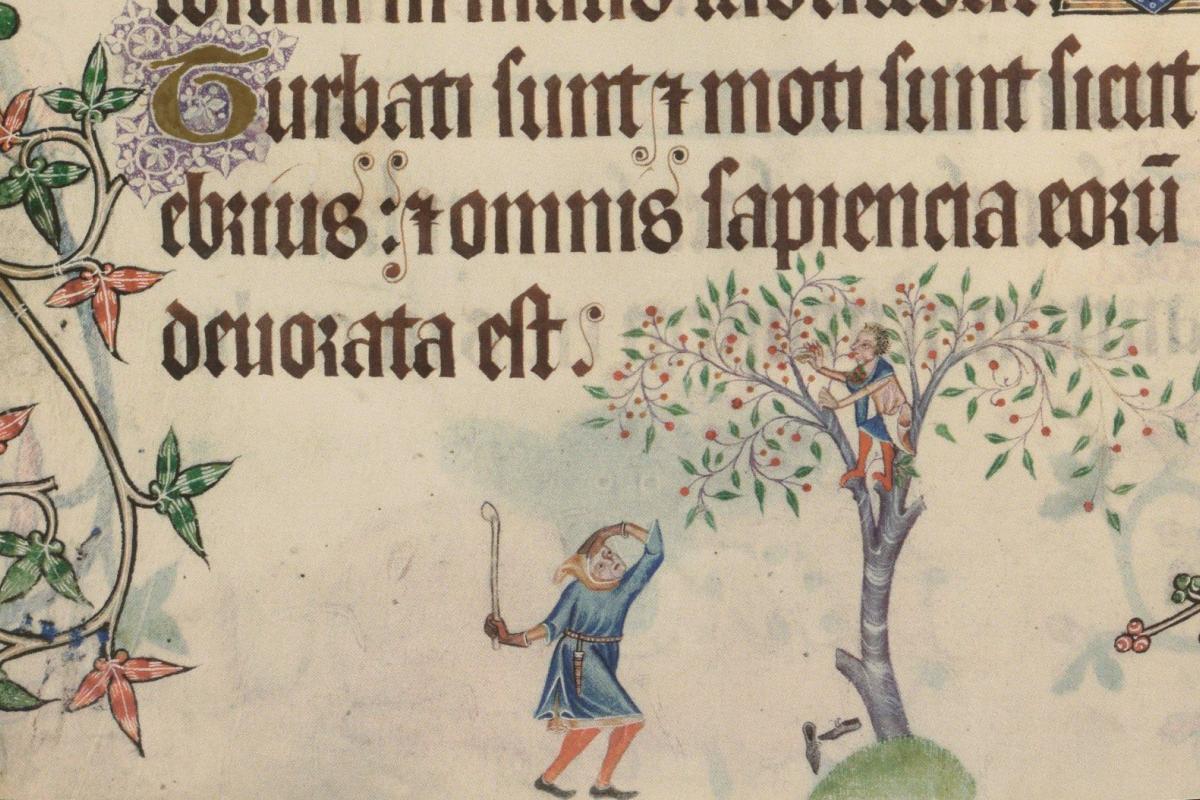 Turbati sunt ⁊ moti sunt sicut
ebrius : ⁊ omnis sapiencia eorū
deuorata est